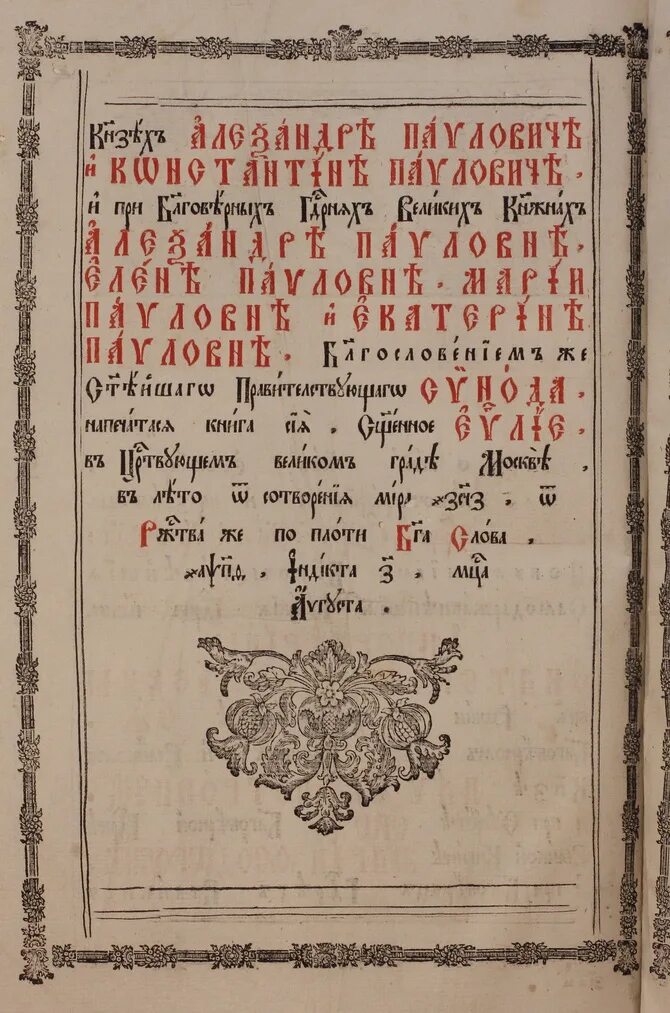 Кн҃зѣхъ А҆леѯа́ндрѣ Па́ѵловичѣ
и҆ Кѡнстант҄і́нѣ Па́ѵловичѣ .
и҆ при Бл҃говѣ́рныхъ Гдⷭ҇рняхъ Вели́кихъ Кн҃жнахъ
А҆леѯа́ндрѣ Па́ѵловнѣ .
Е҆ле́нѣ Па́ѵловнѣ . Марі́и
Па́ѵловнѣ и҆ Е҆катері́нѣ
Па́ѵловнѣ . Бл҃гослове́нїемъ же
Ст҃ѣ́йшагѡ Прави́телствꙋющагѡ Сѷно́да .
напеча́тася кни́га сїѧ̀ . Сщ҃е́нное Е҆ѵⷢ҇лїе .
въ Црⷭ҇твꙋющемъ вели́комъ гра́дѣ Москвѣ̀ .
въ лѣ́то ѿ сотворе́нїя мі́ра ҂зс҃ч҃з . ѿ
Ржⷭ҇тва́ же по пло́ти Бг҃а Сло́ва .
҂аѱ҃пѳ . І҆ндї́кта з҃ . мцⷭ҇а
А҆́ѵгꙋста .